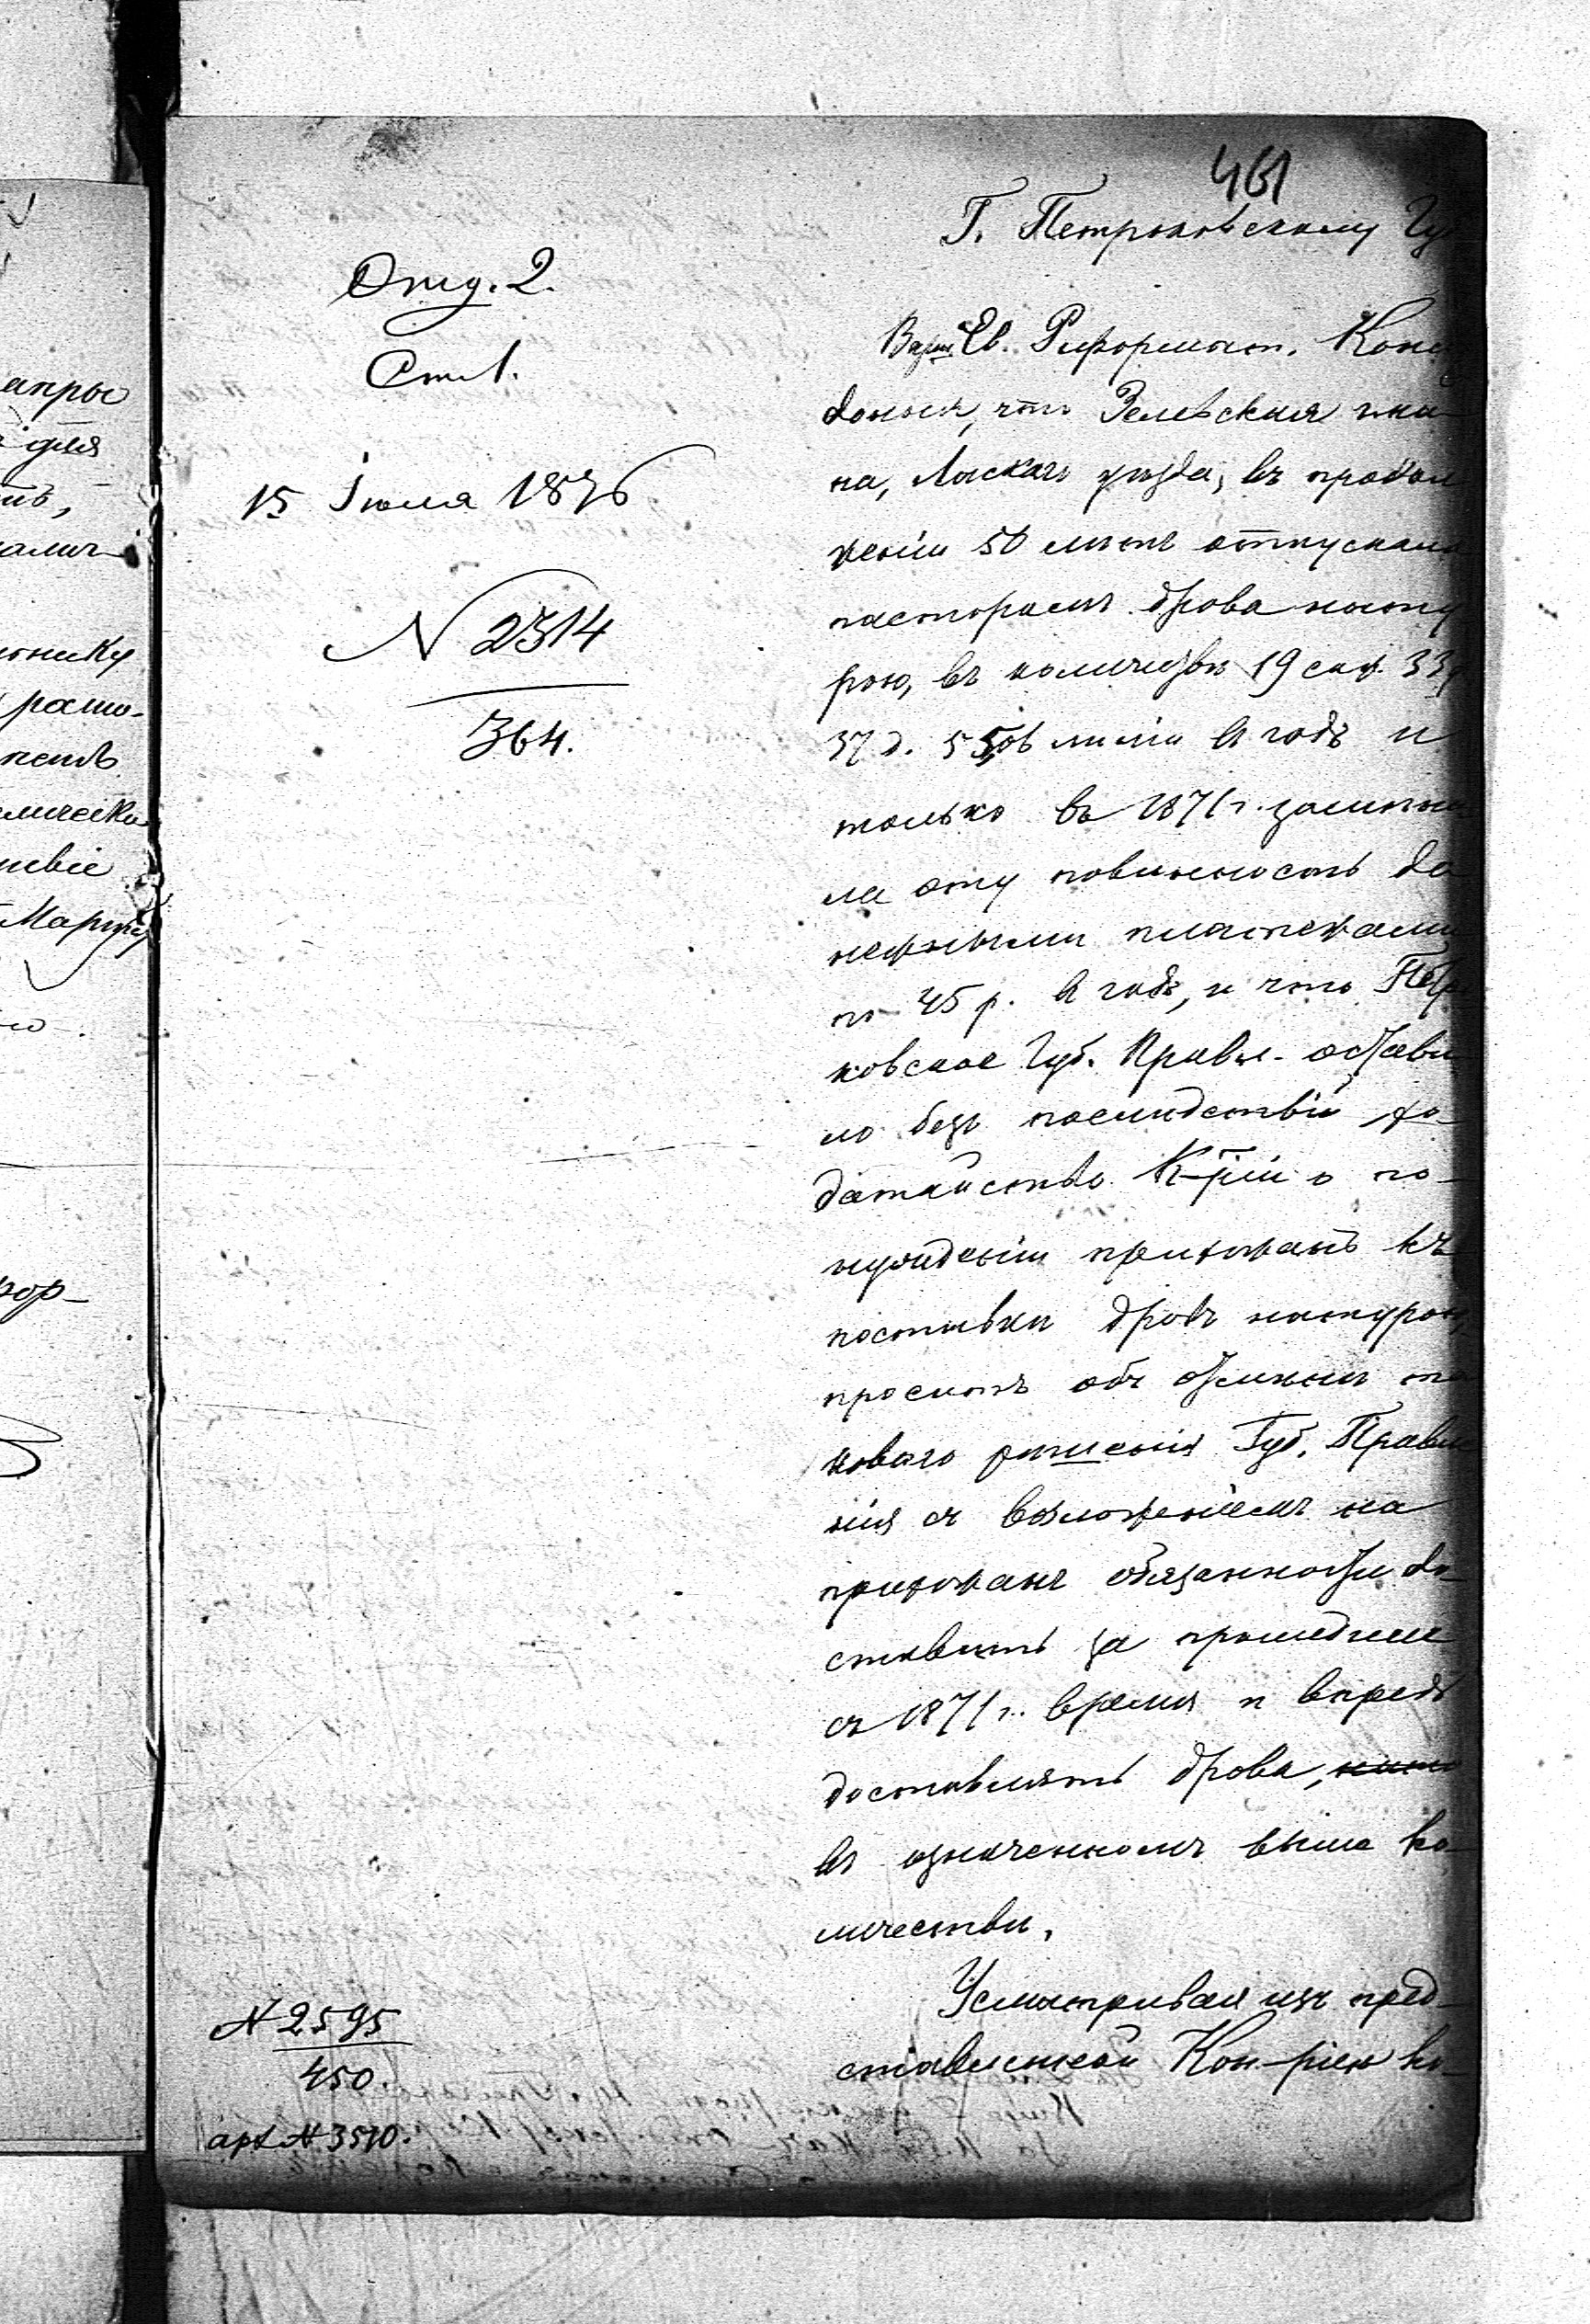 461
Г. Петроковскому Гу
Отд. 2.
Ст. 1.
15 Іюля 1876
N 2314
364.
Варш. Ев. Реформат. Кон
донося, что Зеловская гми
на, Ласкаго уѣзда, въ продол
женіи 50 лѣтъ отпускала
пасторамъ дрова нату
рою, въ количествѣ 19 саж. 33
37 д. лині въ годъ и
только въ 1871 г. замѣни
ла эту повинность де
нежными платежами
по 45 р. въ годъ, и что Петро
ковское Губ. Правл. остави
ло безъ послѣдствій хо-
датайство К-ріи о по-
нужденіи прихожанъ къ
поставкѣ дровъ натурою,
проситъ объ отмѣнѣ та
коваго рѣшенія Губ. Правле
нія съ возложеніемъ на
прихожанъ обязанности до-
ставить за прошедшее
съ 1871 г. время и впредь
доставлять дрова,
въ означенномъ выше ко-
личествѣ.
Усматривая изъ пред-
ставленной Кон-ріею ко-
N 2595
450.
арх N 3510.
апры
для
онику
рато-
Мар
ор-